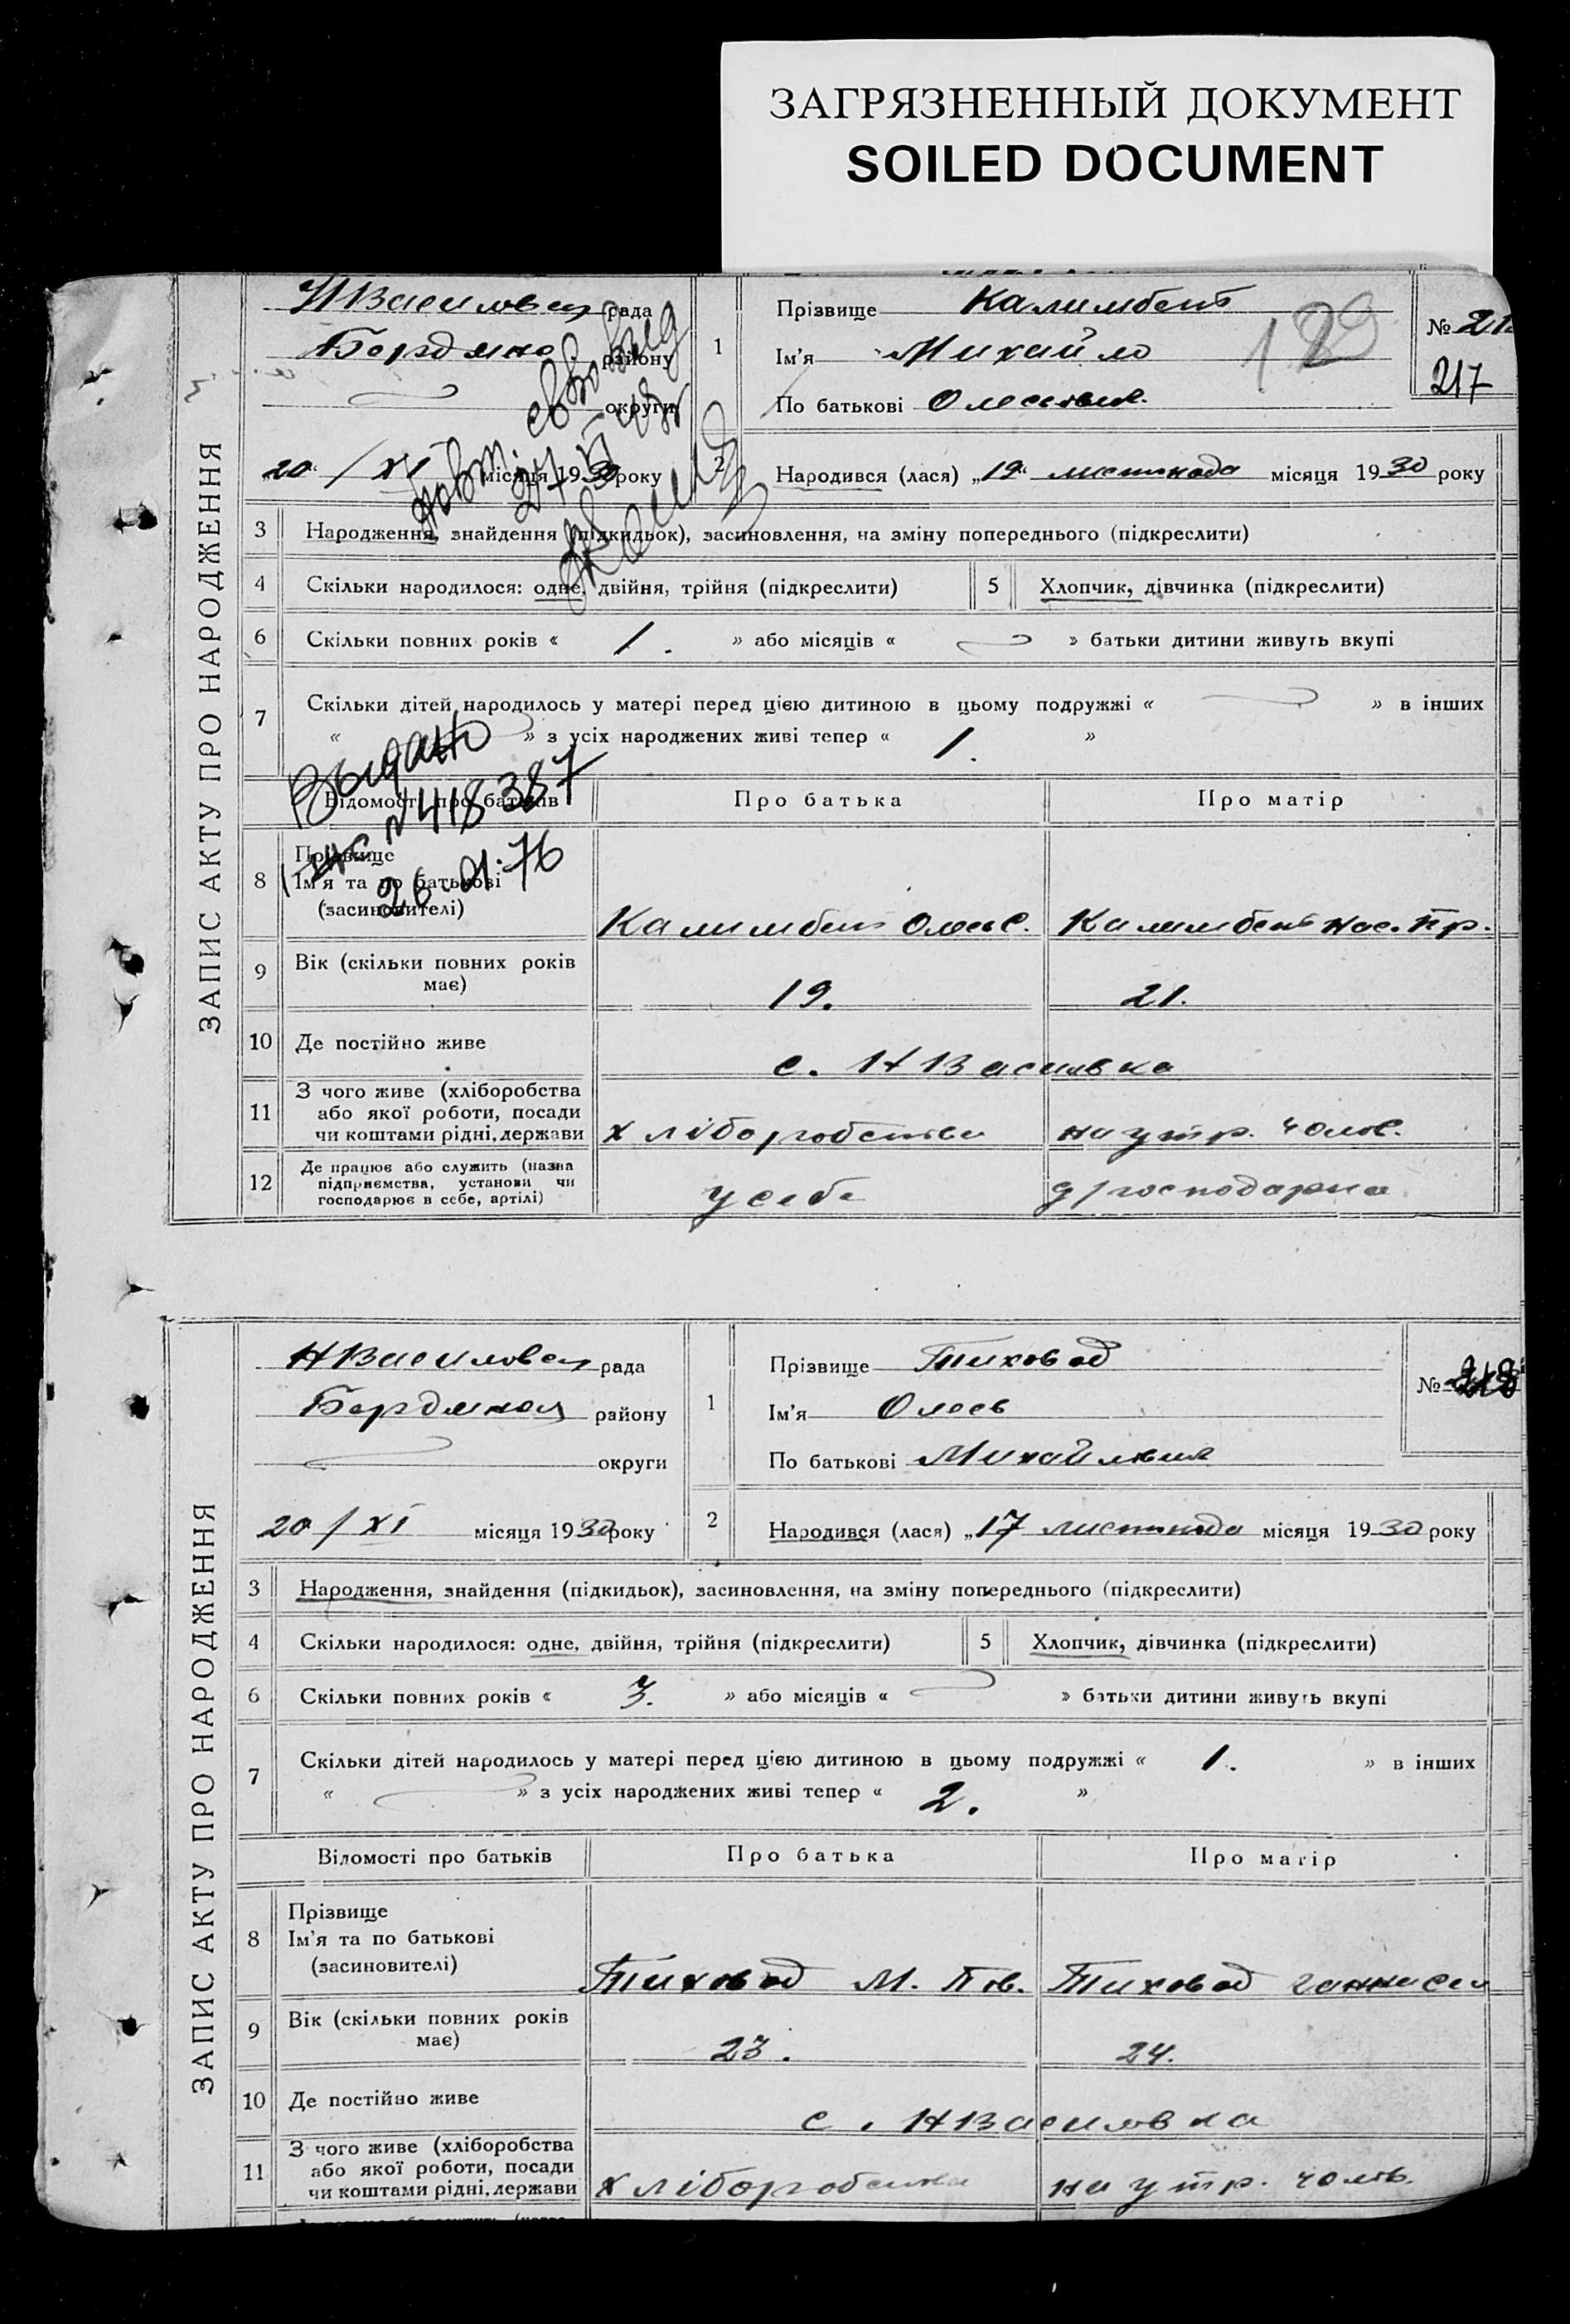 ЗАГРЯЗНЕННЫЙ ДОКУМЕНТ
SOILED DOCUMENT
ЗАПИС АКТУ ПРО НАРОДЖЕННЯ
НВасиловск рада
Бердянс району
округи
20 / XI місяця 1930 року
1
Прізвище Калимбет
Ім'я Михайло
По батькові Олесевич
129
№
217
2
Народився (лася) „19“ листопада місяця 1930 року
3 Народження, знайдення (підкидьок), засиновлення, на зміну попереднього (підкреслити)
4 Скільки народилося: одне, двійня, трійня (підкреслити) 5 Хлопчик, дівчинка (підкреслити)
6 Скільки повних років « 1. » або місяців « » батьки дитини живуть вкупі
7 Скільки дітей народилось у матері перед цією дитиною в цьому подружжі « » в інших
« » з усіх народжених живі тепер « 1. »
Выдано
№ 418387
26.01.76
Відомості про батьків Про батька Про матір
8 Прізвище
Ім'я та по батькові
(засиновителі)
Калимбет Олесь С. Калимбет Нас. Пр.
9 Вік (скільки повних років має) 19. 21.
10 Де постійно живе с. НВасилвка
11 З чого живе (хліборобства
або якої роботи, посади
чи коштами рідні, держави
хліборобство на утр. чолов.
12 Де працює або служить (назва
підприємства, установи чи
господарює в себе, артілі)
у себе д/господарка
ЗАПИС АКТУ ПРО НАРОДЖЕННЯ
НВасиловск рада
Бердянск району
округи
20 / XI місяця 1930 року
1
Прізвище Тиховод
Ім'я Олесь
По батькові Михайлович
№ 218
2
Народився (лася) „17 листопада місяця 1930 року
3 Народження, знайдення (підкидьок), засиновлення, на зміну попереднього (підкреслити)
4 Скільки народилося: одне, двійня, трійня (підкреслити) 5 Хлопчик, дівчинка (підкреслити)
6 Скільки повних років « 3. » або місяців « » батьки дитини живуть вкупі
7 Скільки дітей народилось у матері перед цією дитиною в цьому подружжі « 1. » в інших
« » з усіх народжених живі тепер « 2. »
Відомості про батьків Про батька Про матір
8 Прізвище
Ім'я та по батькові
(засиновителі)
Тиховод М. Пов. Тиховод Ганна
9 Вік (скільки повних років має) 23. 24.
10 Де постійно живе с. НВасиловка
11 З чого живе (хліборобства
або якої роботи, посади
чи коштами рідні, держави
хліборобство на утр. чолов.